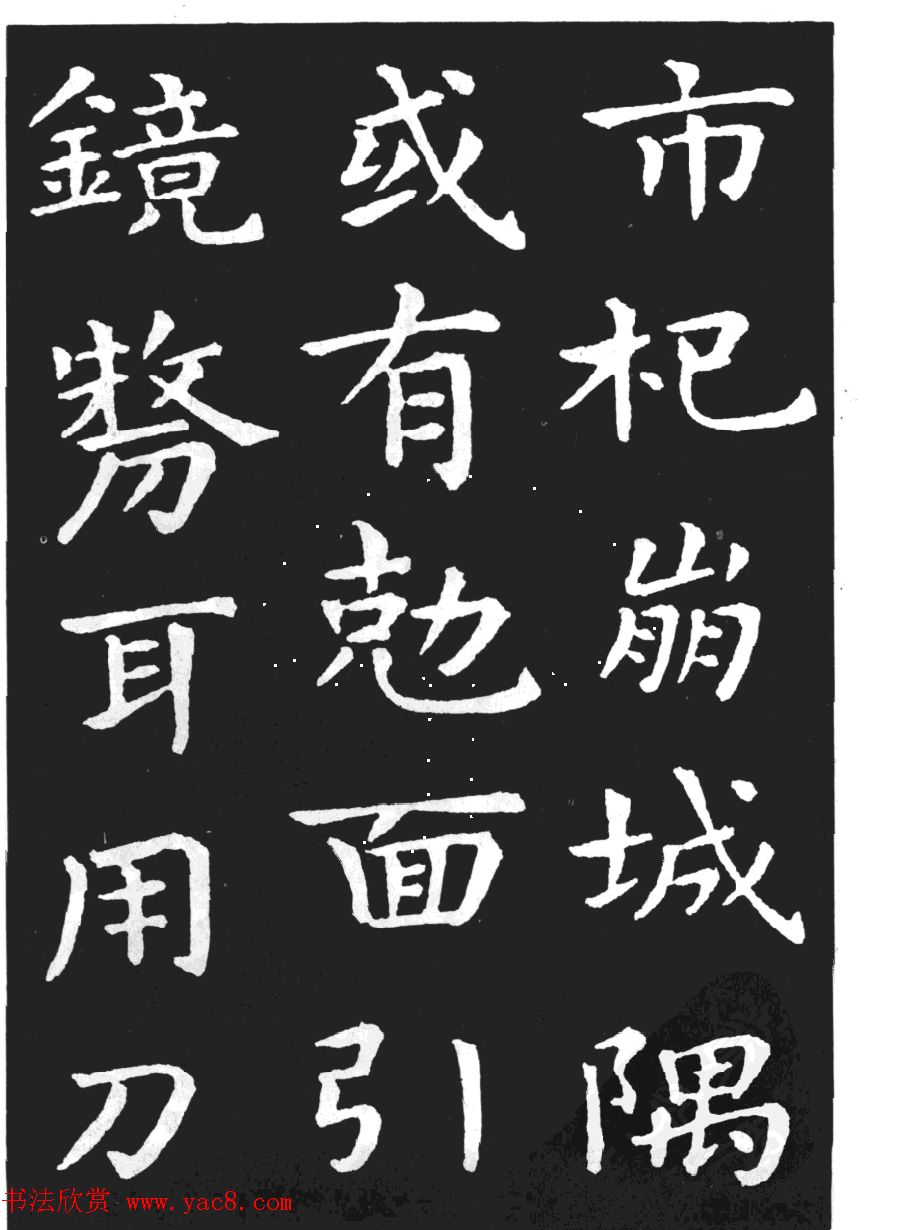 市杞崩城隅
或有勊面引
鏡剺耳用刀
书法欣赏 www.yac8.com